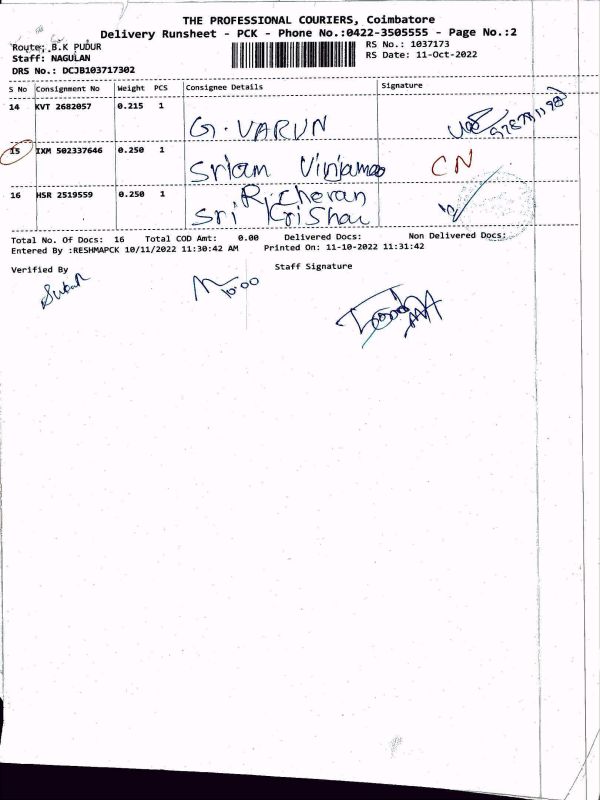 THE PROFESSIONAL COURIERS, Coimbatore
Delivery Runsheet - PCK - Phone No.:0422-3505555 - Page No.:2
Route: B.K PUDUR
RS No.: 1037173
Staff: NAGULAN
RS Date: 11-Oct-2022
DRS No.: DCJB103717302
S No Consignment No Weight PCS Consignee Details Signature
14 KVT 2682057 0.215 1
G. VARUN
15 IXM 502337646 0.250 1
Sriam CN
16 HSR 2519559 0.250 1
R. Cheran
Sri Krishna
Total No. Of Docs: 16 Total COD Amt: 0.00 Delivered Docs: Non Delivered Docs:
Entered By :RESHMAPCK 10/11/2022 11:30:42 AM Printed On: 11-10-2022 11:31:42
Verified By Staff Signature
10:00